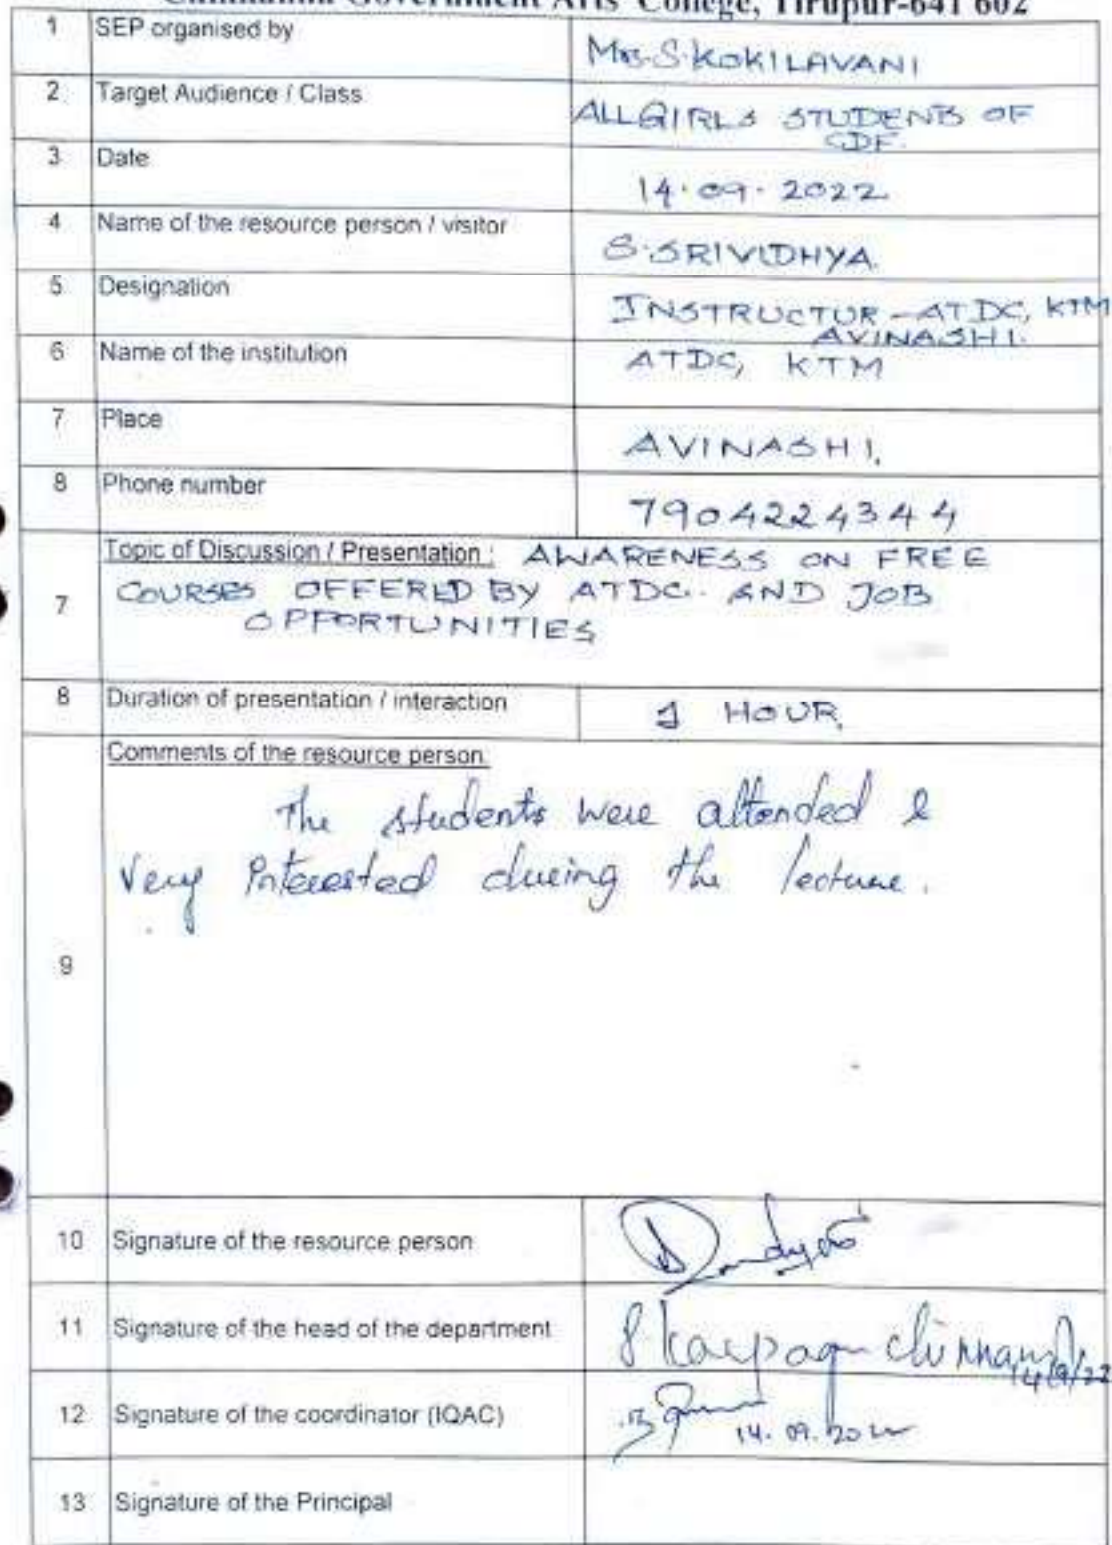 Government Arts College, Tirupur-641 602
1 SEP organised by Mrs.S.KOKILAVANI
2 Target Audience / Class ALL GIRLS STUDENTS OF
CDF.
3 Date 14.09.2022
4 Name of the resource person / visitor S.SRIVIDHYA.
5 Designation INSTRUCTUR - ATDC, KTM
AVINASHI.
6 Name of the institution ATDC, KTM
7 Place AVINASHI.
8 Phone number 7904224344
7 Topic of Discussion / Presentation : AWARENESS ON FREE
COURSES OFFERED BY ATDC. AND JOB
OPPORTUNITIES
8 Duration of presentation / interaction 1 HOUR.
9 Comments of the resource person.
The students were attended &
very interested during the lecture.
10 Signature of the resource person
11 Signature of the head of the department
14/9/22
12 Signature of the coordinator (IQAC)
14.09.2022
13 Signature of the Principal